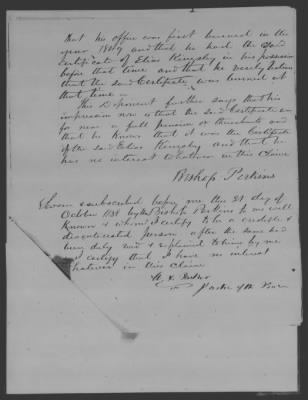 that his office was first burned in the
year 18 and that he had the said
Certificate of Elias Kingsley in his possession
before that time and that he verily believes
that the said Certificate was burned at
that time
This Deponent further says that his
impression now is that the said Certificate was
for near a full pension or thereabouts and
that he knows that it was the Certificate
of the said Elias Kingsley and that he
has no interest whatever in this Claim
Bishop Perkins
Sworn & subscribed before me this 21 day of
October 1851 by Bishop Perkins to me well
known & whom I certify to be a credible &
disinterested person after the same had
been duly read & explained to him by me
I certify that I have no interest
whatever in this Claim
Justice of the Peace